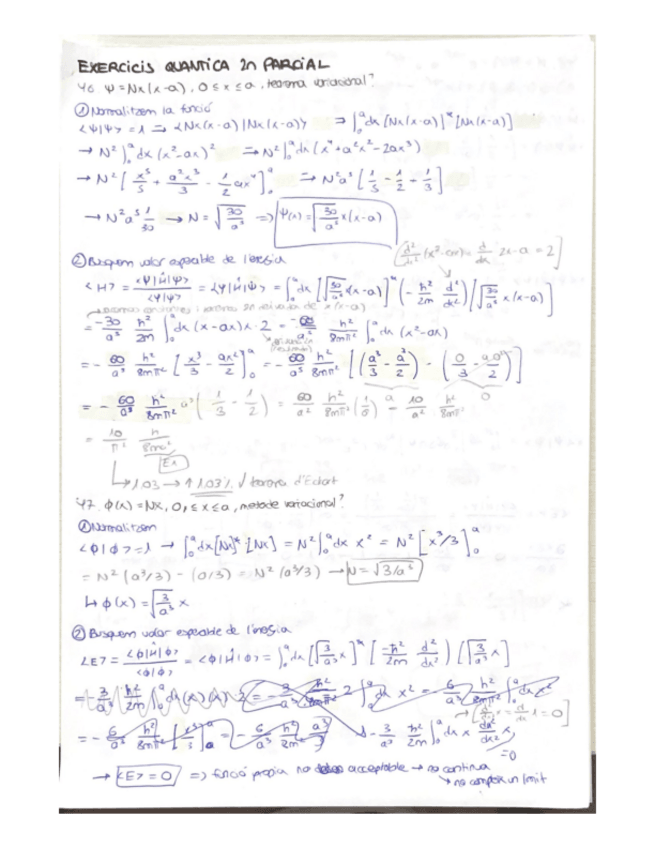 EXERCICIS QUANTICA 2n PARCIAL
46. ψ = Nx(x-a), 0 ≤ x ≤ a, teorema variacional?
① Normalitzem la funció
<ψ|ψ> = 1 ⇒ <Nx(x-a)|Nx(x-a)> ⇒ ∫₀ᵃ dx [Nx(x-a)]* [Nx(x-a)]
→ N² ∫₀ᵃ dx (x²-ax)² ⇒ N² ∫₀ᵃ dx (x⁴+a²x²-2ax³)
→ N² [x⁵/5 + a²x³/3 - 1/2 ax⁴]₀ᵃ ⇒ N²a⁵ [1/5 - 1/2 + 1/3]
→ N²a⁵ 1/30 → N = √(30/a⁵) ⇒ ψ(x) = √(30/a⁵) x(x-a)
② Busquem valor esperable de l'energia
<H> = <ψ|Ĥ|ψ>/<ψ|ψ> = <ψ|Ĥ|ψ> = ∫₀ᵃ dx [√(30/a⁵) x(x-a)]* (-ħ²/2m d²/dx²) [√(30/a⁵) x(x-a)]
= -30/a⁵ ħ²/2m ∫₀ᵃ dx (x-a)x·2 = -60/a⁵ h²/8mπ² ∫₀ᵃ dx (x²-ax)
= -60/a⁵ h²/8mπ² [x³/3 - ax²/2]₀ᵃ = -60/a⁵ h²/8mπ² [(a³/3 - a³/2) - (0/3 - a·0/2)]
= -60/a⁵ h²/8mπ² a³(1/3 - 1/2) = 60/a² h²/8mπ² (1/6) = 10/a² h²/8mπ²
= 10/π² h/8ma²
E₁
↳ 1.03 → ↑ 1.03% √ teorema d'Eckart
47. ϕ(x) = Nx, 0 ≤ x ≤ a, metode variacional?
① Normalitzem
<ϕ|ϕ> = 1 → ∫₀ᵃ dx [Nx]* [Nx] = N² ∫₀ᵃ dx x² = N² [x³/3]₀ᵃ
= N² (a³/3) - (0/3) = N² (a³/3) → N = √3/a³
↳ ϕ(x) = √(3/a³) x
② Busquem valor esperable de l'energia
<E> = <ϕ|Ĥ|ϕ>/<ϕ|ϕ> = <ϕ|Ĥ|ϕ> = ∫₀ᵃ dx [√(3/a³) x]* [-ħ²/2m d²/dx²] [√(3/a³) x]
-3/a³ ħ²/2m ∫₀ᵃ dx x d²/dx² x
=0
→ <E> = 0 ⇒ funció propia no acceptable → no continua
→ no compleix un limit